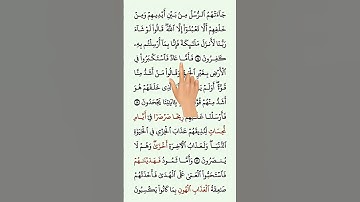 جَآءَتْهُمُ ٱلرُّسُلُ مِنۢ بَيْنِ أَيْدِيهِمْ وَمِنْ
خَلْفِهِمْ أَلَّا تَعْبُدُوٓا۟ إِلَّا ٱللَّهَ ۖ قَالُوا۟ لَوْ شَآءَ
رَبُّنَا لَأَنزَلَ مَلَٰٓئِكَةً فَإِنَّا بِمَآ أُرْسِلْتُم بِهِۦ
كَٰفِرُونَ فَأَمَّا عَادٌ فَٱسْتَكْبَرُوا۟ فِى
ٱلْأَرْضِ بِغَيْرِ ٱلْحَقِّ وَقَالُوا۟ مَنْ أَشَدُّ مِنَّا
قُوَّةً ۖ أَوَلَمْ خَلَقَهُمْ هُوَ
أَشَدُّ مِنْهُمْ قُوَّةً يَجْحَدُونَ
فَأَرْسَلْنَا عَلَيْهِمْ رِيحًا صَرْصَرًا فِىٓ أَيَّامٍ
نَّحِسَاتٍ لِّنُذِيقَهُمْ عَذَابَ ٱلْخِزْىِ فِى ٱلْحَيَوٰةِ
ٱلدُّنْيَا ۖ وَلَعَذَابُ ٱلْءَاخِرَةِ أَخْزَىٰ ۖ وَهُمْ لَا
يُنصَرُونَ وَأَمَّا ثَمُودُ فَهَدَيْنَٰهُمْ
فَٱسْتَحَبُّوا۟ ٱلْعَمَىٰ عَلَى ٱلْهُدَىٰ فَأَخَذَتْهُمْ
صَٰعِقَةُ ٱلْعَذَابِ ٱلْهُونِ بِمَا كَانُوا۟ يَكْسِبُونَ